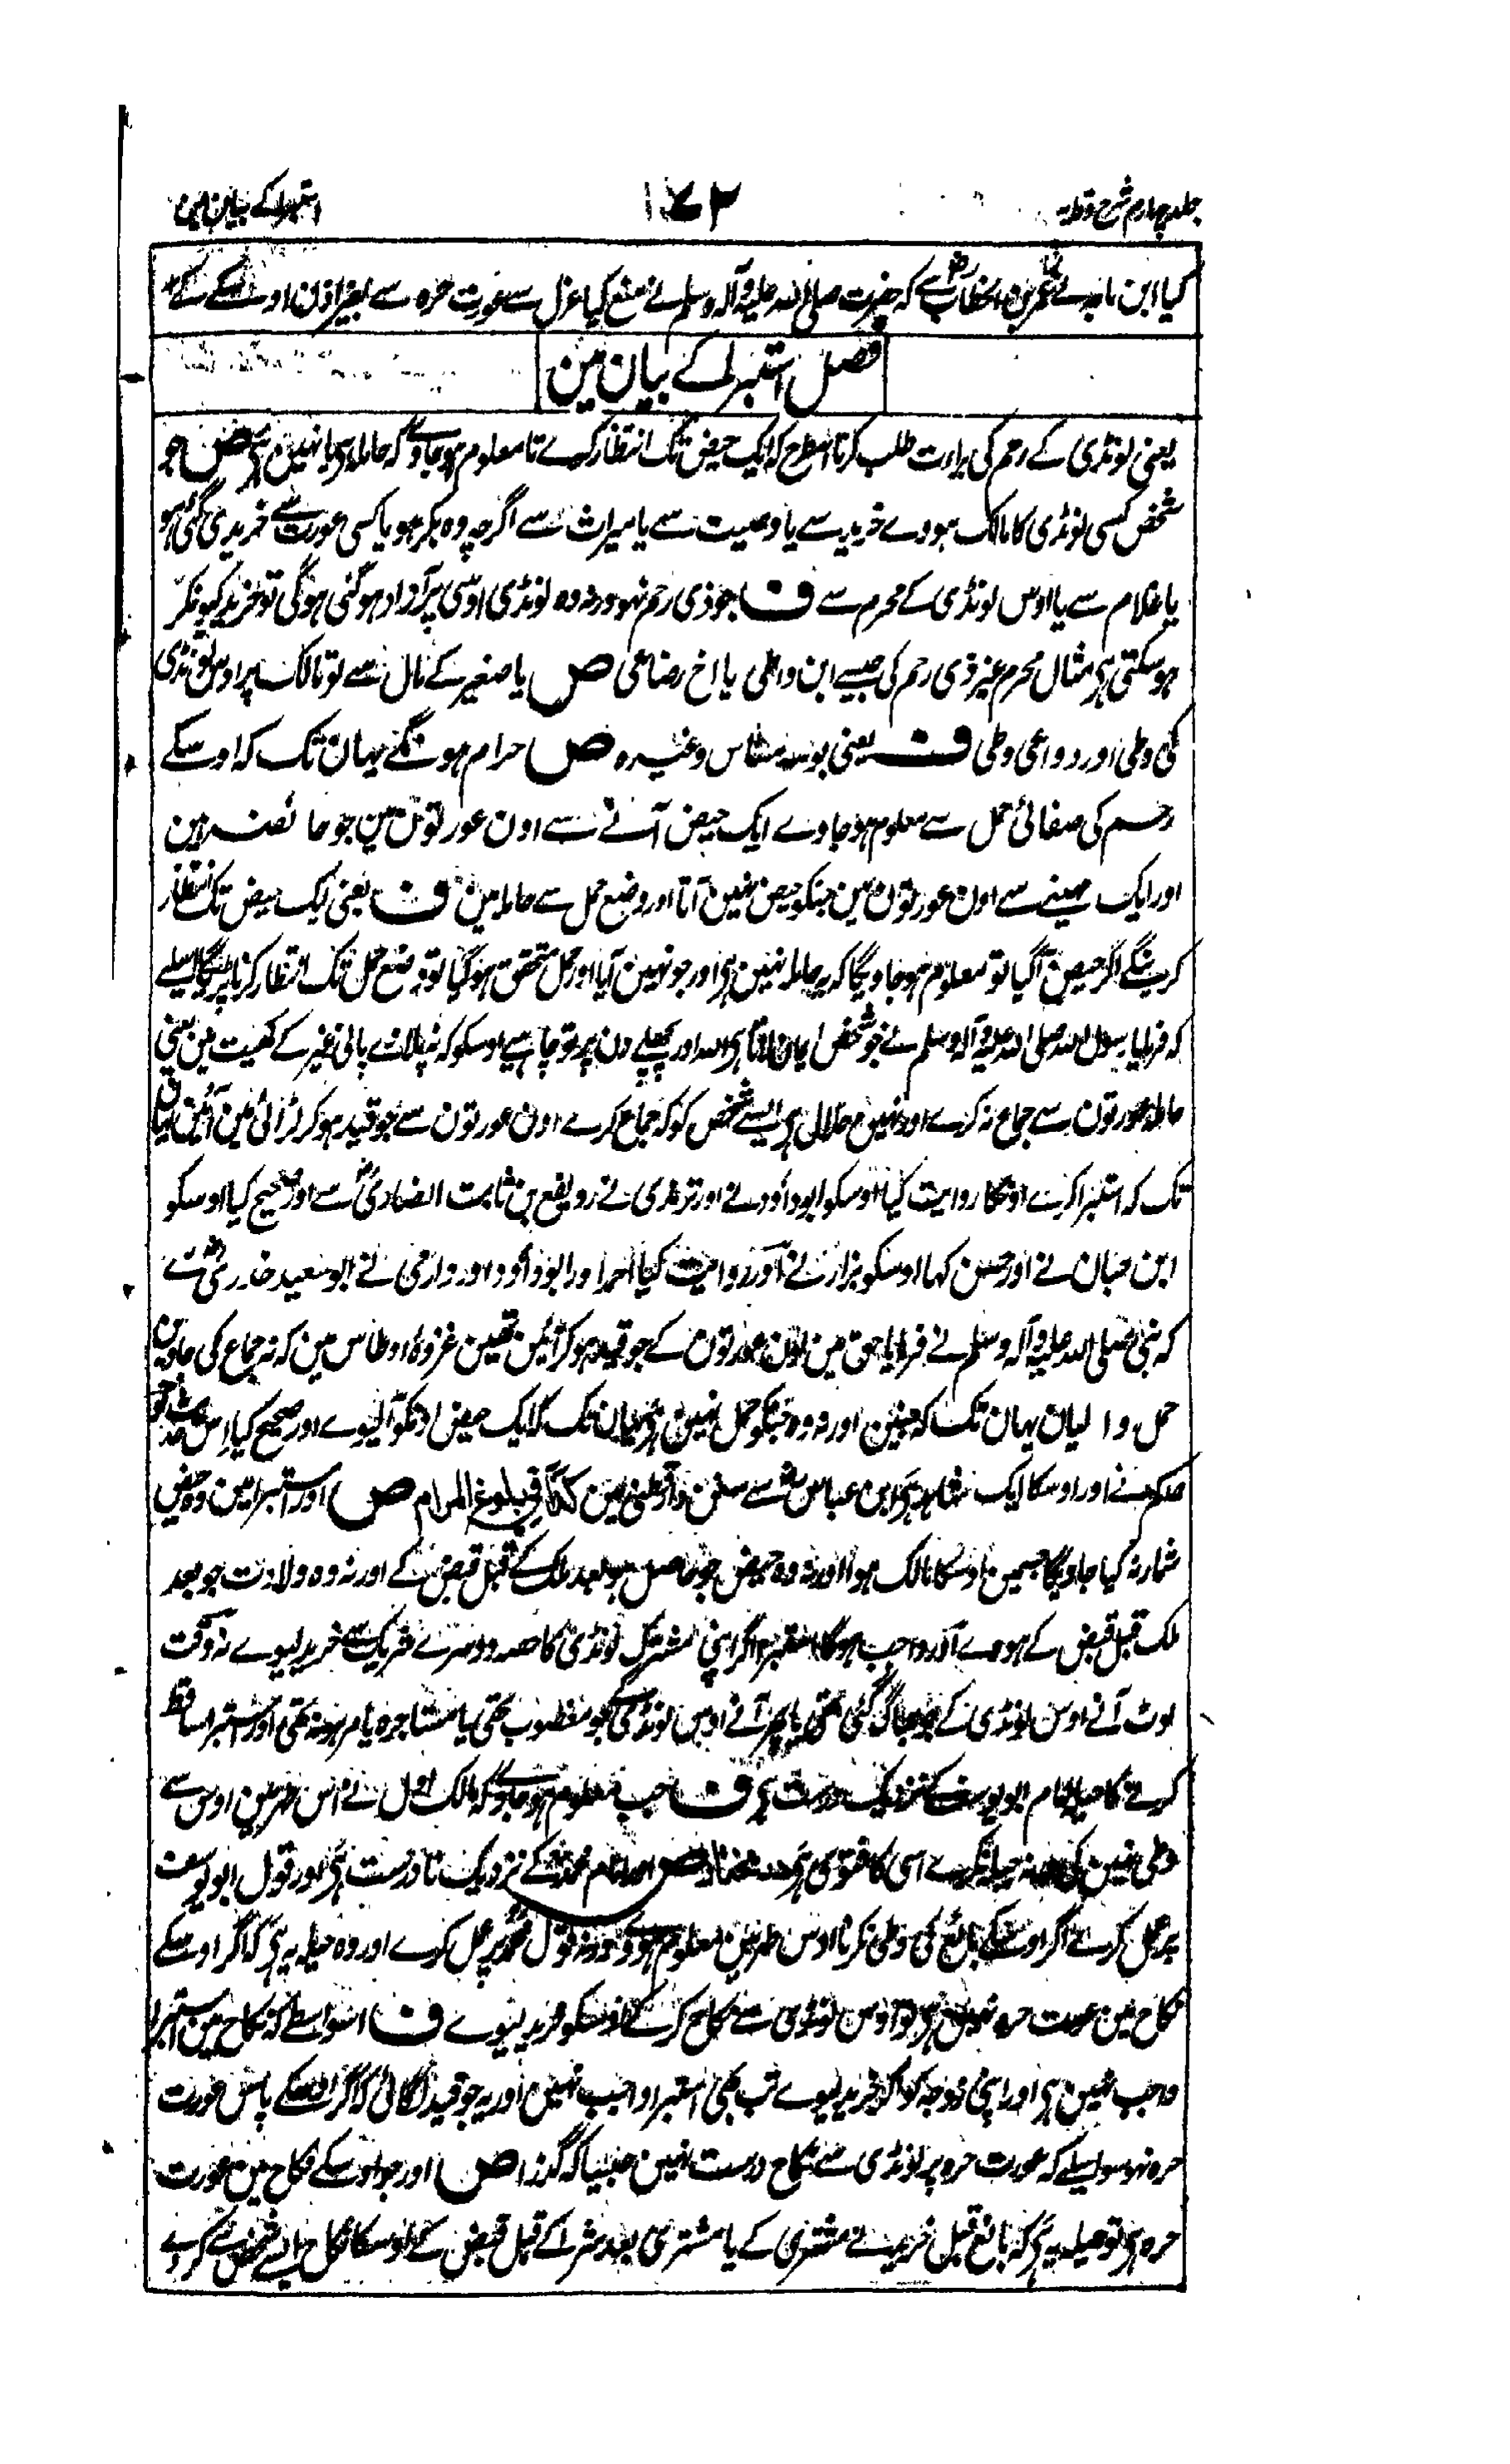 جلد چہارم شرح وقایہ
۱۷۲
استبرا کے بیان مین
کیا ابن ماجہ نے عمر بن الخطاب سے کہ حضرت صلی اللہ علیہ وآلہ وسلم نے منع کیا عزل سے عورت حرہ سے بغیر اذن اوسکے کے
فصل استبرا کے بیان مین
یعنی لونڈی کے رحم کی براءت طلب کرنا اسطرح کہ ایک حیض تک انتظار کرے تا معلوم ہوجاوے کہ حاملہ ہی یا نہین ہی ص جو
شخص کسی لونڈی کا مالک ہووے خرید سے یا وصیت سے یا میراث سے اگرچہ وہ بکر ہو یا کسی عورت سے خریدی گئی ہو
یا غلام سے یا اوس لونڈی کے محرم سے ف جو ذی رحم نہو ورنہ وہ لونڈی اوسی پر آزاد ہوگئی ہوگی تو خرید کیونکر
ہوسکتی ہی مثال محرم غیر ذی رحم کی جیسے ابن واطی یا اخ رضاعی ص یا صغیر کے مال سے تو مالک پر اوس لونڈی
کی وطی اور دواعی وطی ف یعنی بوسہ مساس وغیرہ ص حرام ہونگے یہان تک کہ اوسکے
رحم کی صفائی حمل سے معلوم ہوجاوے ایک حیض آنے سے اون عورتون مین جو حائضہ ہین
اور ایک مہینے سے اون عورتون مین جنکو حیض نہین آتا اور وضع حمل سے حاملہ مین ف یعنی ایک حیض تک انتظار
کرینگے اگر حیض آگیا تو معلوم ہوجاویگا کہ یہ حاملہ نہین ہی اور جو نہین آیا اور حمل متحقق ہوگیا تو وضع حمل تک انتظار کرنا پڑیگا اسلیے
کہ فرمایا رسول اللہ صلی اللہ علیہ وآلہ وسلم نے جو شخص ایمان لاتا ہی اللہ اور پچھلے دن پر تو چاہیے اوسکو کہ نہ پلاوے پانی غیر کے کھیت مین یعنی
حاملہ عورتون سے جماع نہ کرے اور نہین حلال ہی ایسے شخص کو کہ جماع کرے اون عورتون سے جو قید ہوکر لڑائی مین آئین یہان
تک کہ استبرا کرے اونکا روایت کیا اوسکو ابوداود نے اور ترمذی نے رویفع بن ثابت انصاری سے اور صحیح کیا اوسکو
ابن حبان نے اور حسن کہا اوسکو بزار نے اور روایت کیا احمد اور ابوداود اور دارمی نے ابو سعید خدری سے
کہ نبی صلی اللہ علیہ وآلہ وسلم نے فرمایا حق مین اون عورتون کے جو قید ہوکر آئین تھین غزوہ اوطاس مین کہ نہ جماع کی جاوین
حمل والیان یہان تک کہ جنین اور نہ وہ جنکو حمل نہین ہی یہان تک کہ ایک حیض اونکو آلیوے اور صحیح کیا اس حدیث کو
حاکم نے اور اوسکا ایک شاہد ہی ابن عباس سے سنن دارقطنی مین کذا فی بلوغ المرام ص اور استبرا مین وہ حیض
شمار نہ کیا جاویگا جسمین اوسکا مالک ہوا اور نہ وہ حیض جو حاصل ہو بعد ملک کے قبل قبض کے اور نہ وہ ولادت جو بعد
ملک قبل قبض کے ہووے اور واجب ہوگا استبرا اگر اپنی مشترک لونڈی کا حصہ دوسرے شریک سے خرید لیوے نہ وقت
لوٹ آنے اوس لونڈی کے جو بھاگ گئی تھی یا پھر آنے اوس لونڈی کے جو مغصوب تھی یا مستاجرہ یا مرہونہ تھی اور استبرا ساقط
کرنے کا حیلہ امام ابو یوسف کے نزدیک درست ہی ف جب معلوم ہوجاوے کہ مالک اول نے اس طہر مین اوس سے
وطی نہین کی ورنہ حیلہ نکرے اسی کا فتوی ہی در مختار ص اور امام محمد کے نزدیک نادرست ہی اور قول ابو یوسف
پر عمل کرے اگر اوسکے بائع کی وطی نکرنا اوس طہر مین معلوم ہووے ورنہ قول محمد پر عمل کرے اور وہ حیلہ یہ ہی کہ اگر اوسکے
نکاح مین عورت حرہ نہین ہی تو اوس لونڈی سے نکاح کرکے اوسکو خرید لیوے ف اسواسطے کہ نکاح مین استبرا
واجب نہین ہی اور اپنی زوجہ کو اگر خرید لیوے تب بھی استبرا واجب نہین اور یہ جو قید لگائی کہ اگر اوسکے پاس عورت
حرہ نہو سو اسلیے کہ عورت حرہ پر لونڈی سے نکاح درست نہین جیسا کہ گذرا ص اور جو اوسکے نکاح مین عورت
حرہ ہی تو حیلہ یہ ہی کہ بائع قبل خریدنے مشتری کے یا مشتری بعد شرا کے قبل قبض کے اوسکا نکاح ایسے شخص سے کردے